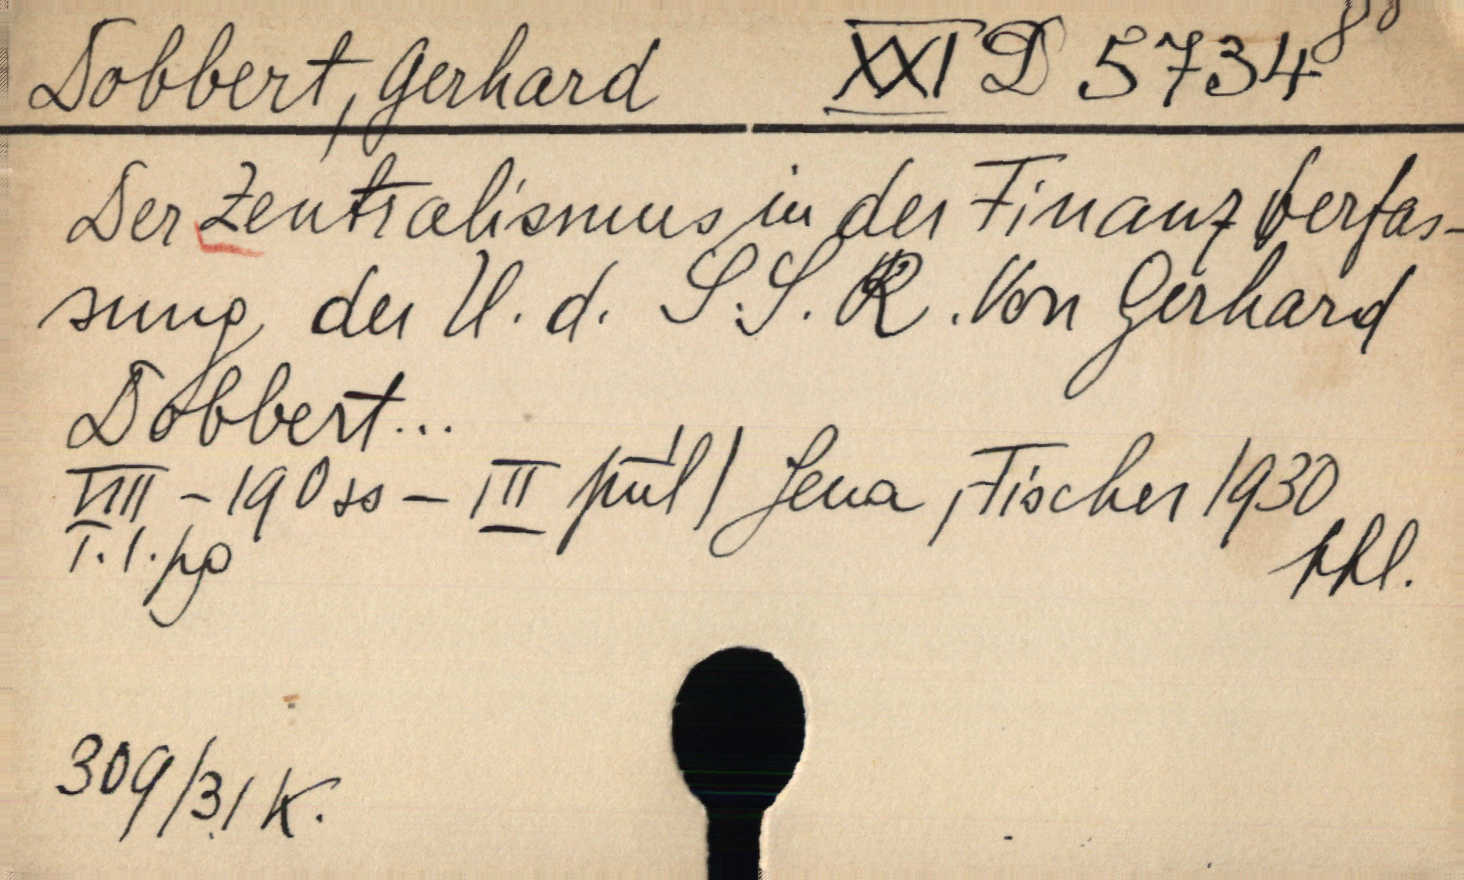 Dobbert, Gerhard XXI D 5734 80
Der Zentralismus in der Finanzverfas-
sung der U. d. S.S.R. Von Gerhard
Dobbert...
VIII - 190 ss - III příl / Jena, Fischer 1930
T. I. pg
ppl.
309/31 K.